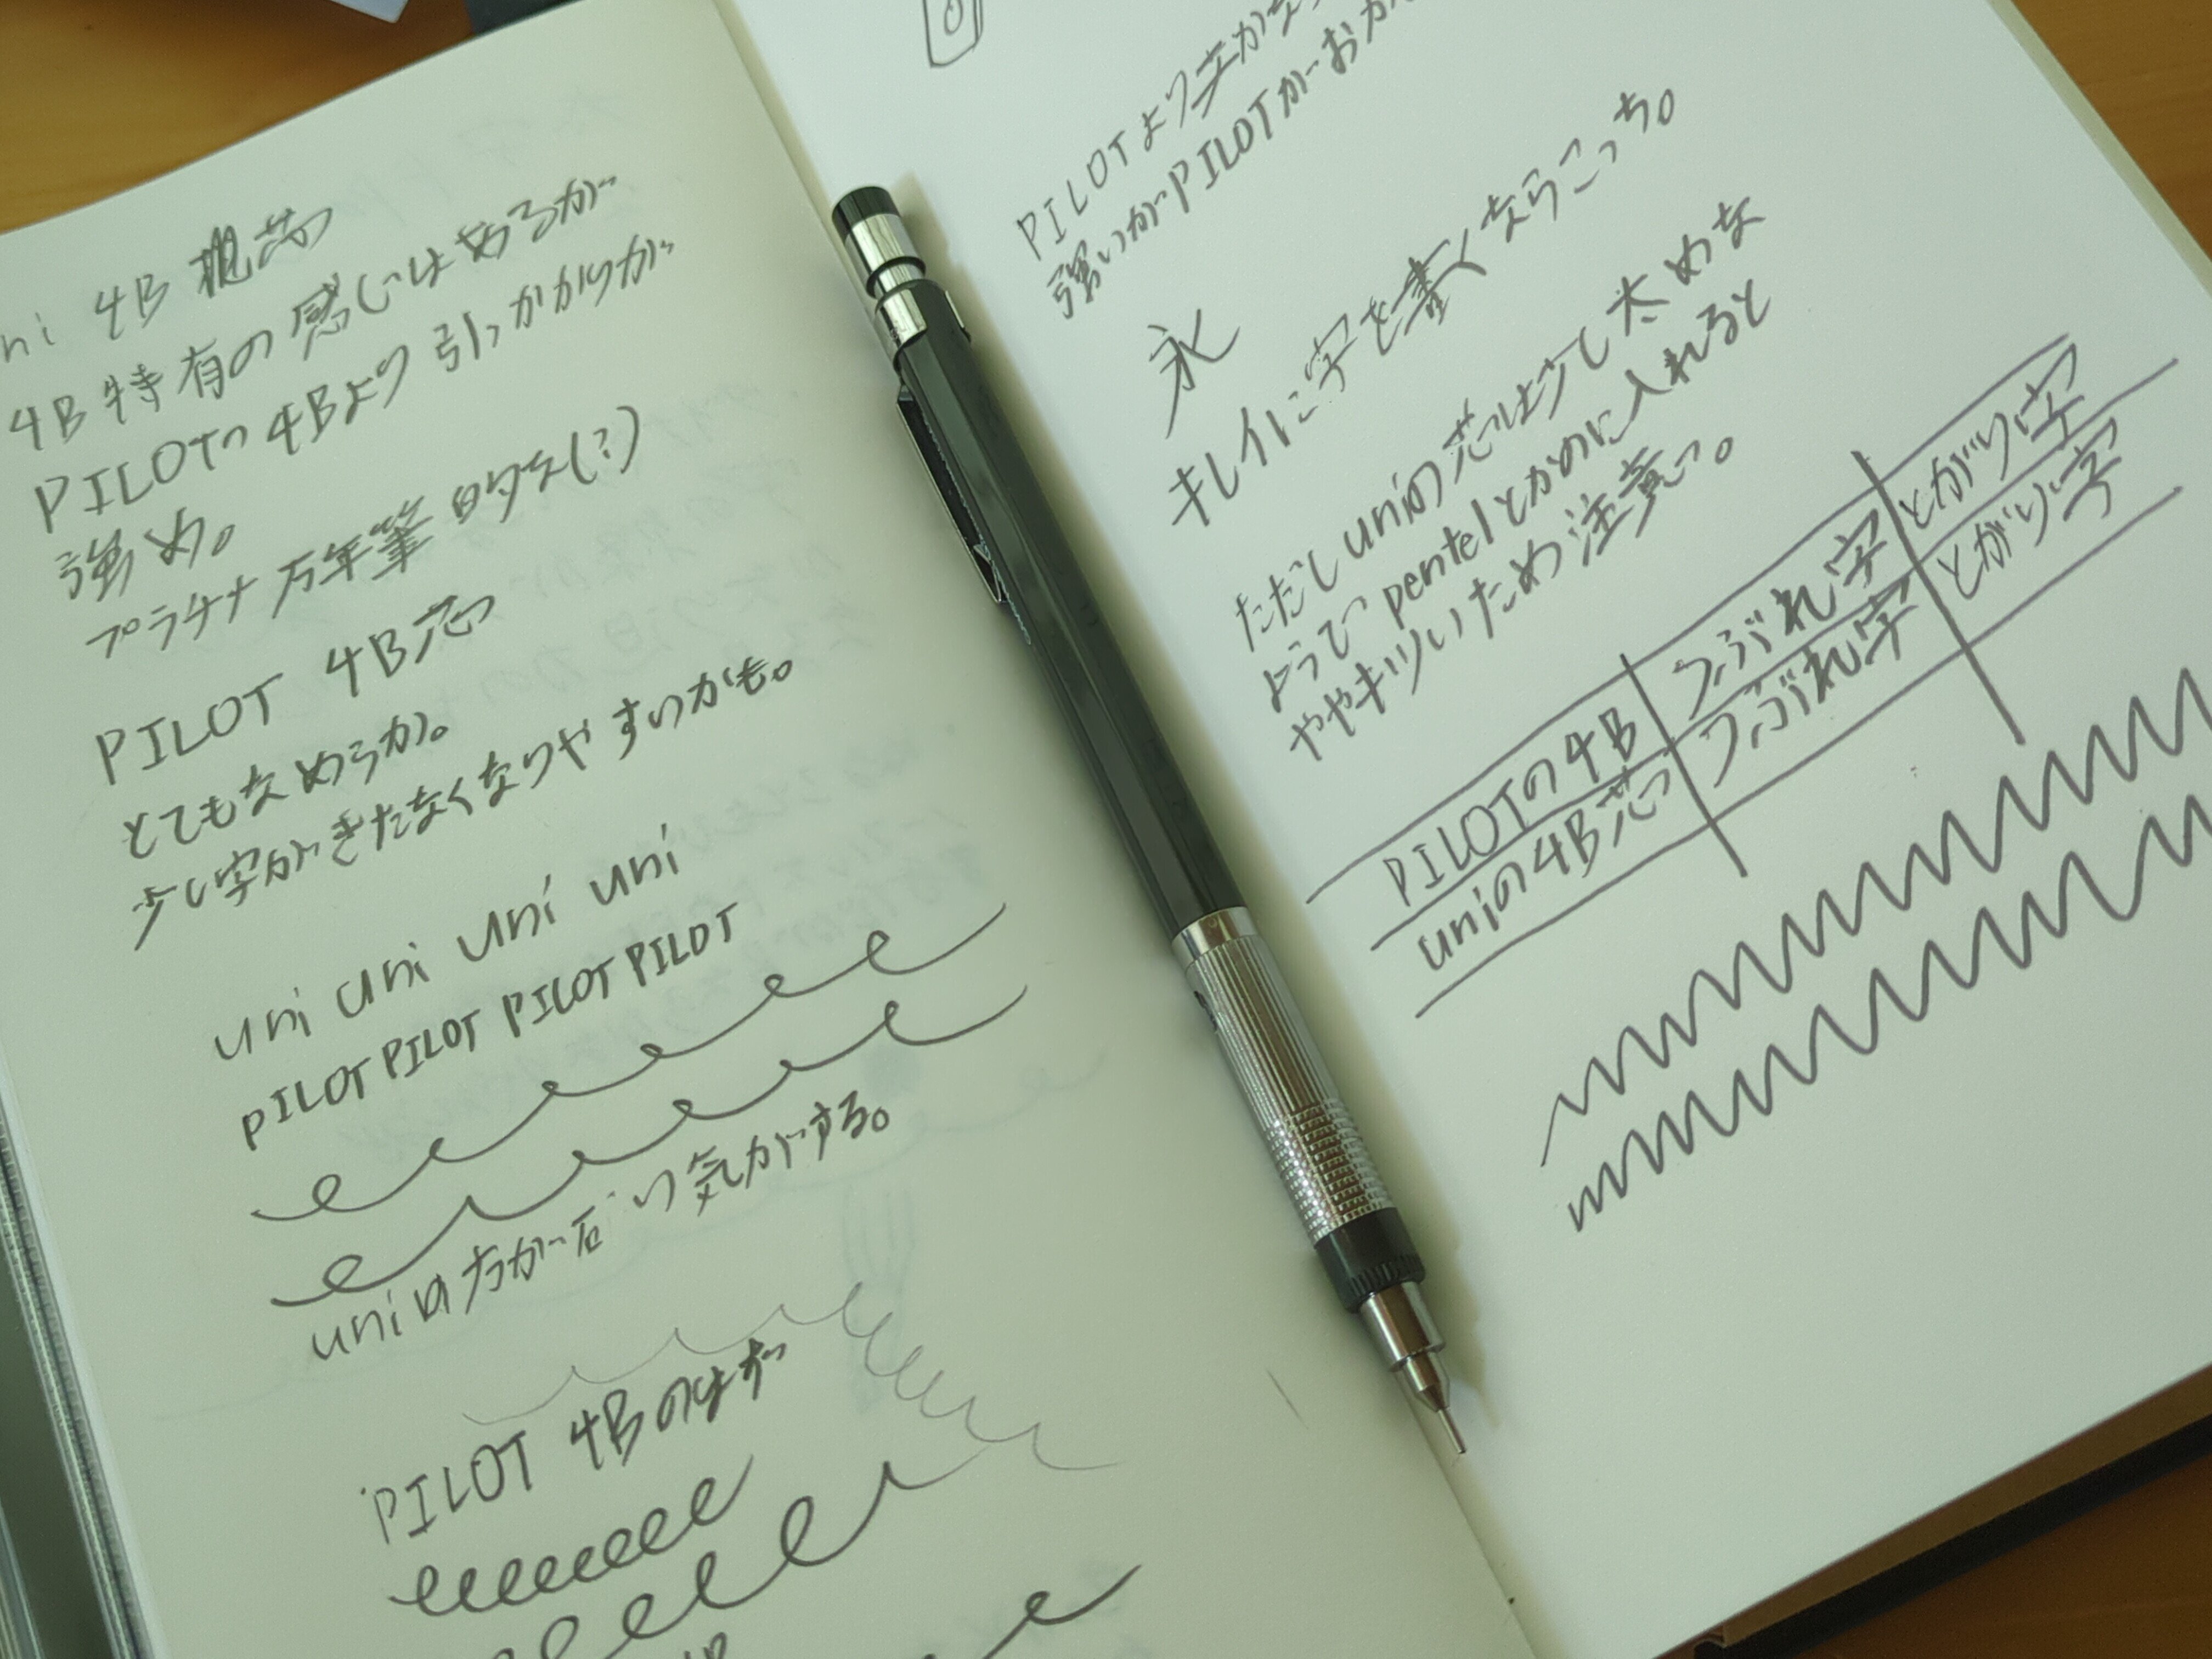 4B 芯
4B特有の感じはあるが
PILOTの4Bより引っかかりが
強め。
プラチナ万年筆的な(?)
PILOT 4B芯
とてもなめらか。
少し字がきたなくなりやすいかも。
uni uni uni uni
PILOT PILOT PILOT PILOT
uniの方が石い気がする。
PILOT 4Bのはず
PILOTより芯が
強いがPILOTが
永
キレイに字を書くならこっち。
ただしuniの芯は少し太めな
ようでpentelとかのに入れると
ややキツいため注意。
PILOTの4B つぶれ字 とがり字
uniの4B芯 つぶれ字 とがり字